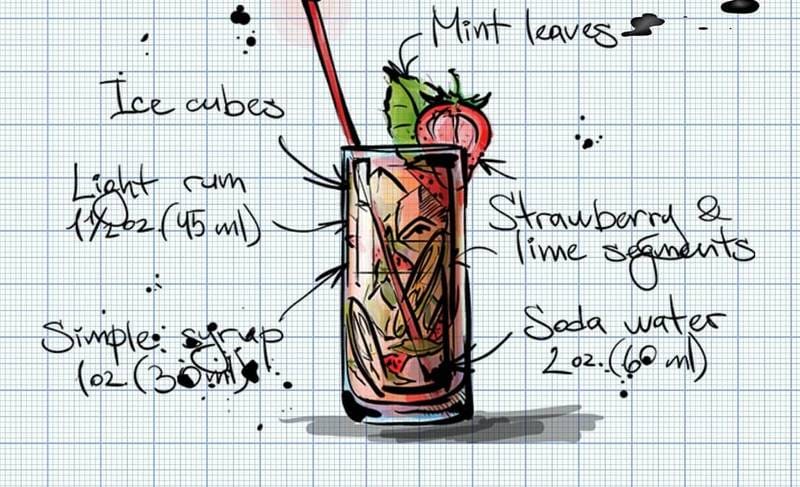 Mint leaves
Ice cubes
Light rum
1 1/2 oz (45 ml)
Strawberry &
lime segments
Simple syrup
1 oz (30 ml)
Soda water
2 oz. (60 ml)